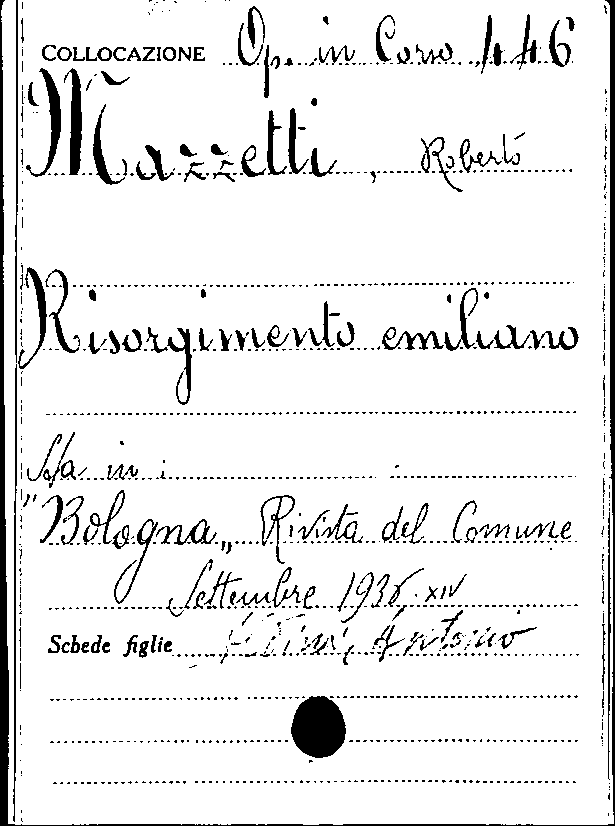 COLLOCAZIONE Op. in Corso 446
Mazzetti, Roberto
Risorgimento emiliano
Sta in:
"Bologna„ Rivista del Comune
Settembre 1936 - XIV
Schede figlie Antonio